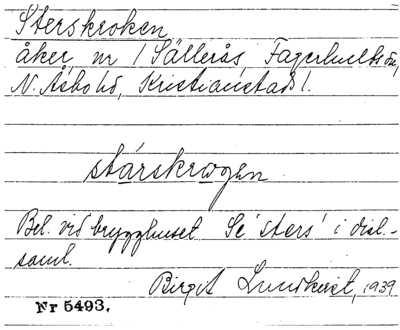 Sterskroken
åker nr 1 Sällerås, Fagerhults sn,
N. Åsbo hd, Kristianstads l.
stárskrogen
Bel. vid brygghuset Se 'sters' i dial.-
saml.
Birgit Lundkvist, 1939
Nr 5493.